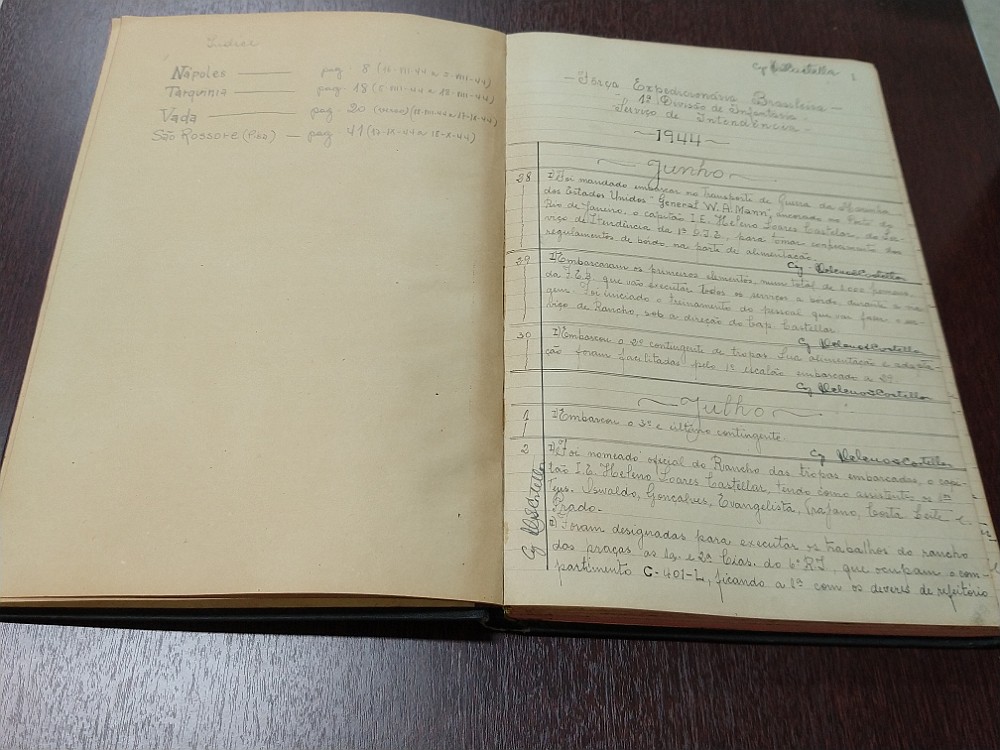 Indice
Nápoles — pag. 8 (16-VII-44 a 5-VIII-44)
Tarquinia — pag. 18 (5-VIII-44 a 18-VIII-44)
Vada — pag. 20
São Rossore (Pisa) — pag. 41 (17-IX-44 a 18-X-44)
Cap HSCastellar 1
— Força Expedicionária Brasileira —
1ª Divisão de Infantaria
— Serviço de Intendência —
~ 1944 ~
~ Junho ~
28 1) Foi mandado embarcar no transporte de Guerra da Marinha
dos Estados Unidos "General W. A. Mann", ancorado no Porto do
Rio de Janeiro, o capitão I.E. Heleno Soares Castelar, do Ser-
viço de Itendência da 1ª D.I.E, para tomar conhecimento dos
regulamentos de bordo, na parte de alimentação.
Cap HelenoSCastellar
29 1) Embarcaram os primeiros elementos, num total de
da F.E.B. que vão executar todos os serviços a bordo, durante a via-
gem. Foi iniciado o treinamento do pessoal que vai fazer o ser-
viço de Rancho, sob a direção do Cap Castellar
Cap HelenoSCastellar
30 1) Embarcou o 2º contingente de tropas. Sua alimentação e adapta-
ção foram facilitadas pelo 1º escalão embarcado a 29.
Cap HelenoSCastellar
~ Julho ~
1 1) Embarcou o 3º e último contingente.
Cap HelenoSCastellar
2 1) Foi nomeado oficial do Rancho das tropas embarcadas, o capi-
tão I.E. Heleno Soares Castellar, tendo como assistentes os 1ºs
Tens. Oswaldo, Gonçalves, Evangelista, Trajano, Costa Leite e
Prado.
2) Foram designadas para executar os trabalhos do rancho
das praças as 1ª. e 2ª Cias. do 6º R.I, que ocupam o com-
partimento C-401-L, ficando a 1ª com os deveres de refeitório
Cap HSCastellar